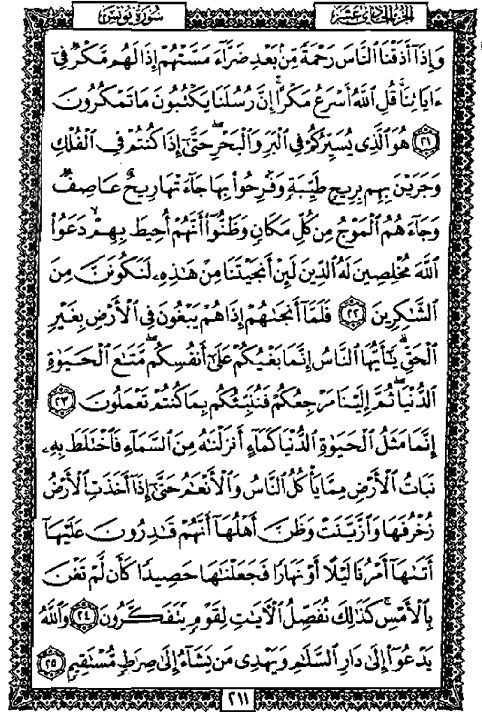 سُورَةُ يُونُسَ الجُزْءُ الحَادِي عَشَرَ
وَإِذَآ أَذَقْنَا ٱلنَّاسَ رَحْمَةً مِّنۢ بَعْدِ ضَرَّآءَ مَسَّتْهُمْ إِذَا لَهُم مَّكْرٌ فِىٓ
ءَايَاتِنَا ۚ قُلِ ٱللَّهُ أَسْرَعُ مَكْرًا ۚ إِنَّ رُسُلَنَا يَكْتُبُونَ مَا تَمْكُرُونَ
٢١ هُوَ ٱلَّذِى يُسَيِّرُكُمْ فِى ٱلْبَرِّ وَٱلْبَحْرِ ۖ حَتَّىٰٓ إِذَا كُنتُمْ فِى ٱلْفُلْكِ
وَجَرَيْنَ بِهِم بِرِيحٍ طَيِّبَةٍ وَفَرِحُوا۟ بِهَا جَآءَتْهَا رِيحٌ عَاصِفٌ
وَجَآءَهُمُ ٱلْمَوْجُ مِن كُلِّ مَكَانٍ وَظَنُّوٓا۟ أَنَّهُمْ أُحِيطَ بِهِمْ ۙ دَعَوُا۟
ٱللَّهَ مُخْلِصِينَ لَهُ ٱلدِّينَ لَئِنْ أَنجَيْتَنَا مِنْ هَٰذِهِۦ لَنَكُونَنَّ مِنَ
ٱلشَّٰكِرِينَ ٢٢ فَلَمَّآ أَنجَىٰهُمْ إِذَا هُمْ يَبْغُونَ فِى ٱلْأَرْضِ بِغَيْرِ
ٱلْحَقِّ ۗ يَٰٓأَيُّهَا ٱلنَّاسُ إِنَّمَا بَغْيُكُمْ عَلَىٰٓ أَنفُسِكُم ۖ مَّتَٰعَ ٱلْحَيَوٰةِ
ٱلدُّنْيَا ۖ ثُمَّ إِلَيْنَا مَرْجِعُكُمْ فَنُنَبِّئُكُم بِمَا كُنتُمْ تَعْمَلُونَ ٢٣
إِنَّمَا مَثَلُ ٱلْحَيَوٰةِ ٱلدُّنْيَا كَمَآءٍ أَنزَلْنَٰهُ مِنَ ٱلسَّمَآءِ فَٱخْتَلَطَ بِهِۦ
نَبَاتُ ٱلْأَرْضِ مِمَّا يَأْكُلُ ٱلنَّاسُ وَٱلْأَنْعَٰمُ حَتَّىٰٓ إِذَآ أَخَذَتِ ٱلْأَرْضُ
زُخْرُفَهَا وَٱزَّيَّنَتْ وَظَنَّ أَهْلُهَآ أَنَّهُمْ قَٰدِرُونَ عَلَيْهَآ
أَتَىٰهَآ أَمْرُنَا لَيْلًا أَوْ نَهَارًا فَجَعَلْنَٰهَا حَصِيدًا كَأَن لَّمْ تَغْنَ
بِٱلْأَمْسِ ۚ كَذَٰلِكَ نُفَصِّلُ ٱلْءَايَٰتِ لِقَوْمٍ يَتَفَكَّرُونَ ٢٤ وَٱللَّهُ
يَدْعُوٓا۟ إِلَىٰ دَارِ ٱلسَّلَٰمِ وَيَهْدِى مَن يَشَآءُ إِلَىٰ صِرَٰطٍ مُّسْتَقِيمٍ ٢٥
٢١١